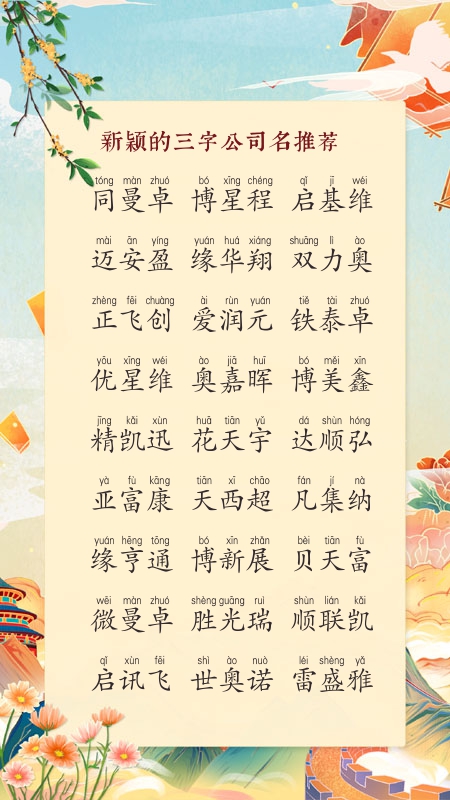 新颖的三字公司名推荐
tóng màn zhuó bó xīng chéng qǐ jī wéi
同曼卓 博星程 启基维
mài ān yíng yuán huá xiáng shuāng lì ào
迈安盈 缘华翔 双力奥
zhèng fēi chuàng ài rùn yuán tiě tài zhuó
正飞创 爱润元 铁泰卓
yōu xīng wéi ào jiā huī bó měi xīn
优星维 奥嘉晖 博美鑫
jīng kǎi xùn huā tiān yǔ dá shùn hóng
精凯迅 花天宇 达顺弘
yà fù kāng tiān xī chāo fán jí nà
亚富康 天西超 凡集纳
yuán hēng tōng bó xīn zhǎn bèi tiān fù
缘亨通 博新展 贝天富
wēi màn zhuó shèng guāng ruì shùn lián kǎi
微曼卓 胜光瑞 顺联凯
qǐ xùn fēi shì ào nuò léi shèng yǎ
启讯飞 世奥诺 雷盛雅